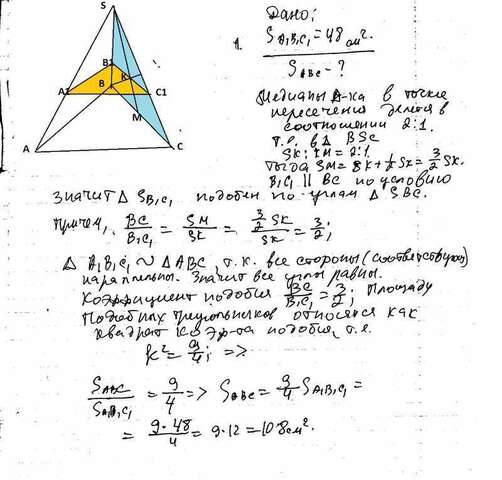 S
B1
K
B
A1
C1
M
A
C
Дано:
1. S A₁B₁C₁ = 48 см².
S ABC - ?
Медианы Δ-ка в точке
пересечения делятся в
соотношении 2:1.
т.е. в Δ BSC
SK: KM = 2:1.
тогда SM = SK + ½ SK = 3/2 SK.
B₁C₁ || BC по условию
значит Δ SB₁C₁ подобен по углам Δ SBC.
причем, BC/B₁C₁ = SM/SK = 3/2 SK/SK = 3/2;
Δ A₁B₁C₁ ~ Δ ABC, т.к. все стороны (соответствующ)
параллельны. Значит все углы равны.
Коэффициент подобия BC/B₁C₁ = 3/2; Площади
Подобных треугольников относятся как
квадрат коэф-та подобия, т.е.
k² = 9/4; =>
S ABC/S A₁B₁C₁ = 9/4 => S ABC = 9/4 S A₁B₁C₁ =
= 9·48/4 = 9·12 = 108 см².